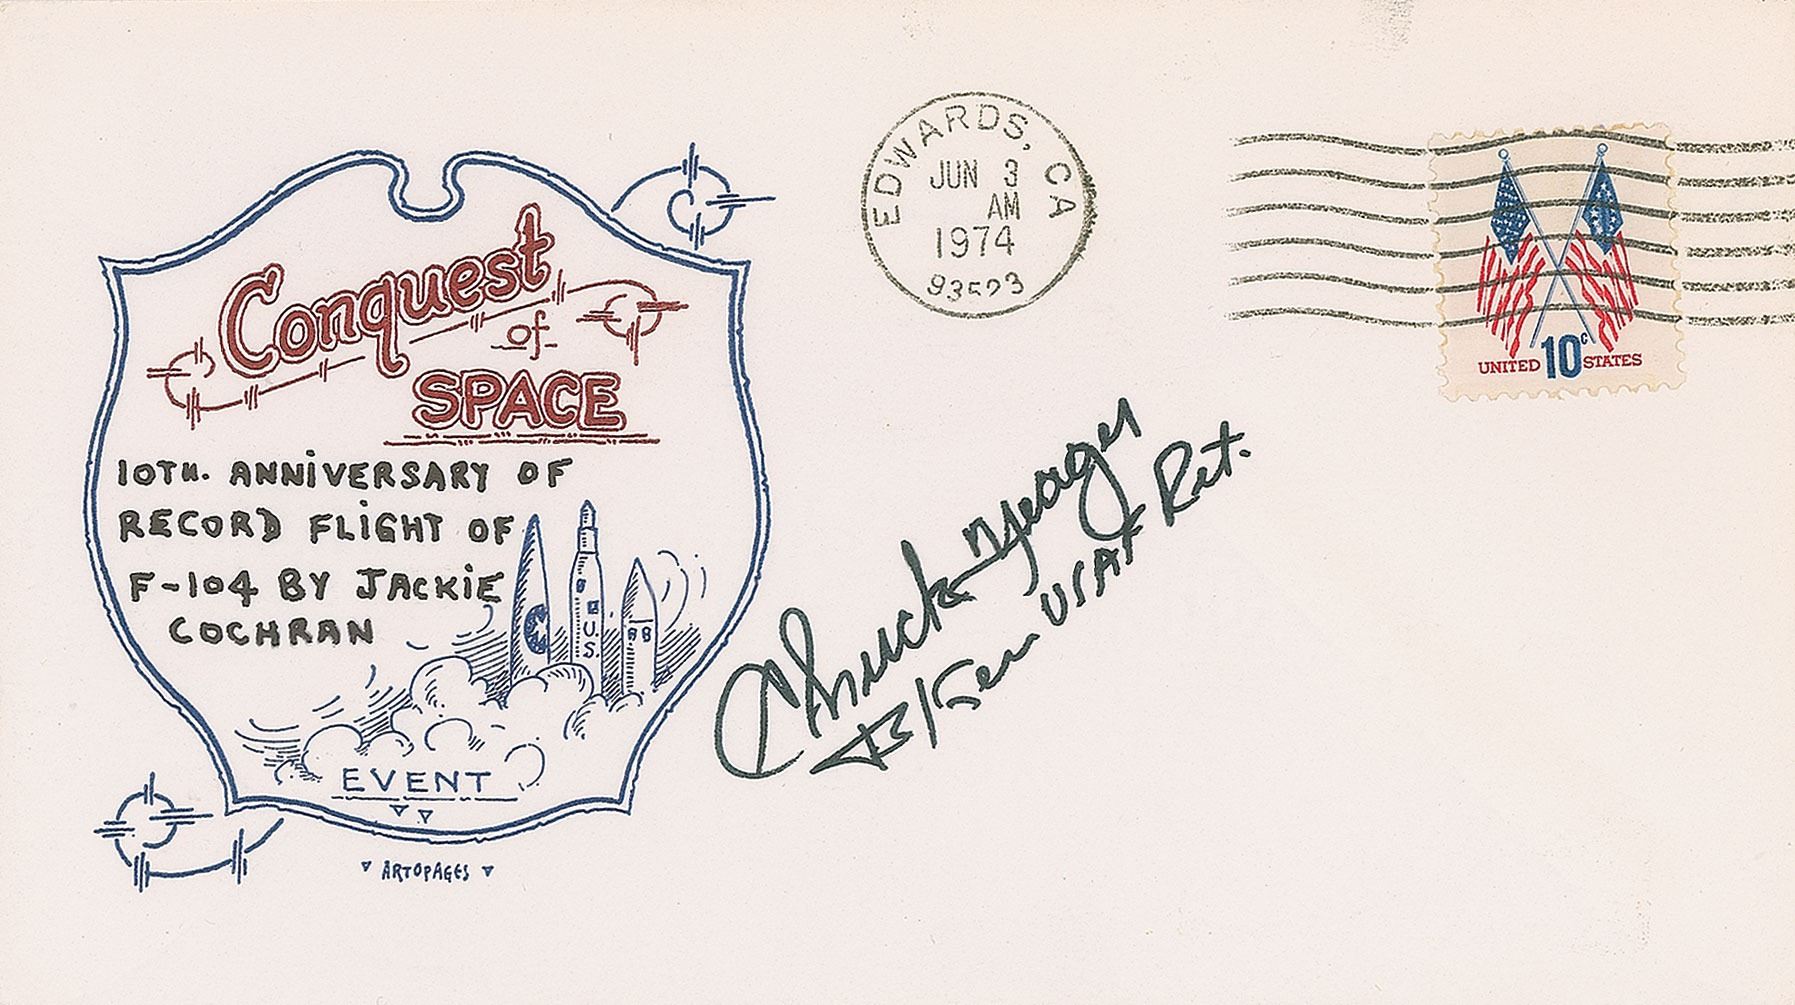 Conquest
of
SPACE
10TH. ANNIVERSARY OF
RECORD FLIGHT OF
F-104 BY JACKIE
COCHRAN
U.S.
EVENT
ARTOPAGES
EDWARDS, CA
JUN 3
AM
1974
93523
UNITED 10c STATES
Chuck Yeager
B/Gen USAF Ret.